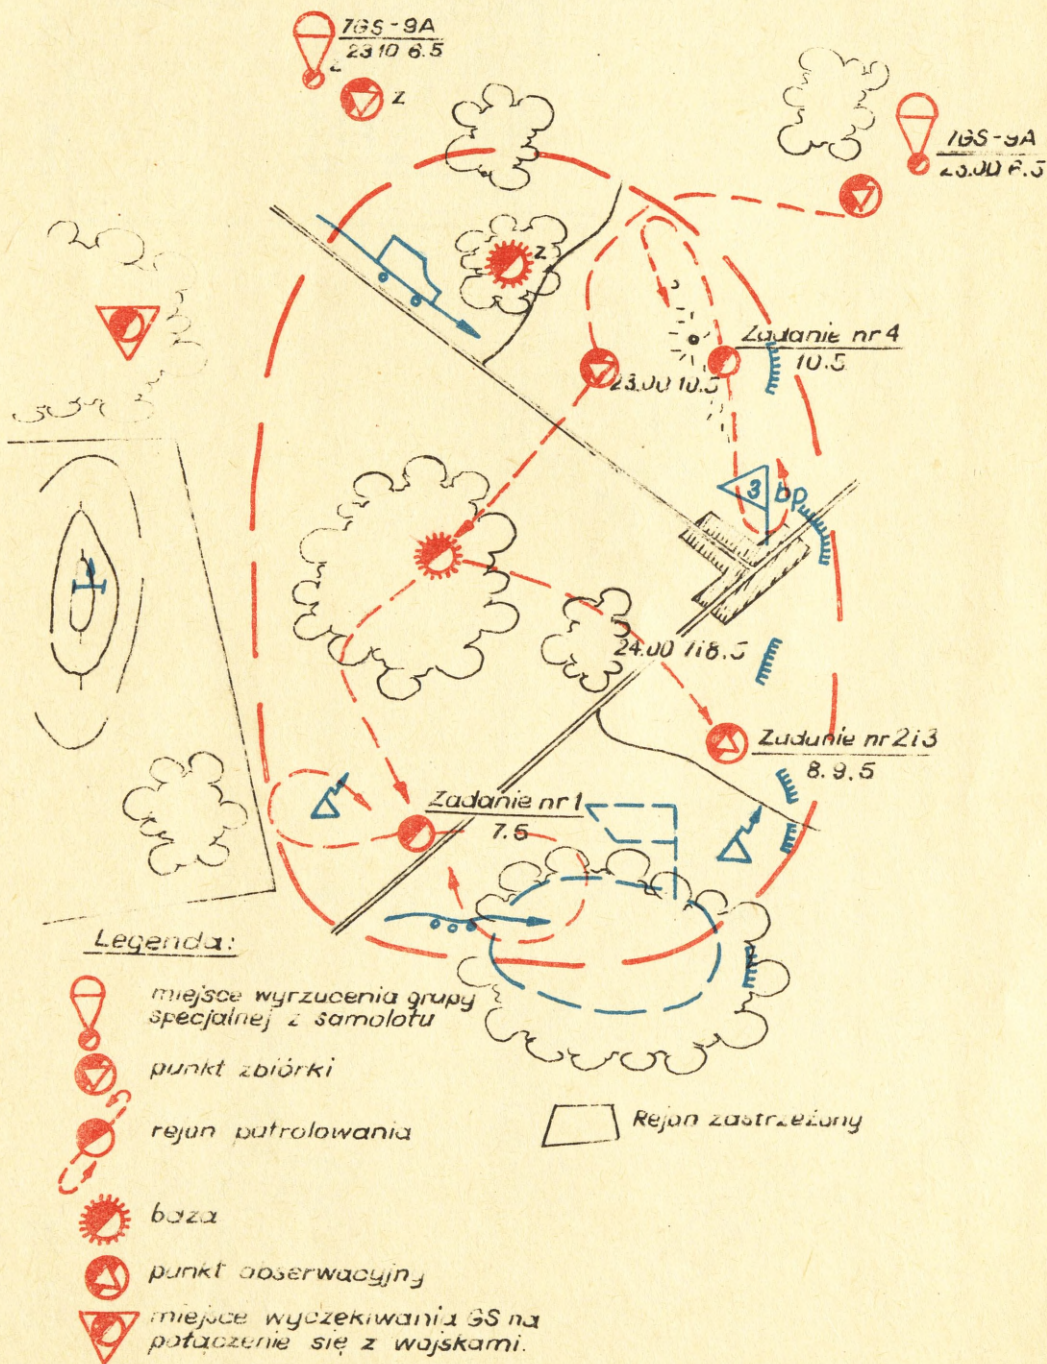 7GS-9A
23.10 6.5
z
z
7GS-9A
23.00 6.5
z
Zadanie nr 4
10.5
23.00 10.5
3 bp
24.00 7i8.5
Zadanie nr 2i3
8.9.5
Zadanie nr 1
7.5
Legenda:
miejsce wyrzucenia grupy
specjalnej z samolotu
punkt zbiórki
rejon patrolowania
Rejon zastrzeżony
baza
punkt obserwacyjny
miejsce wyczekiwania GS na
połączenie się z wojskami.